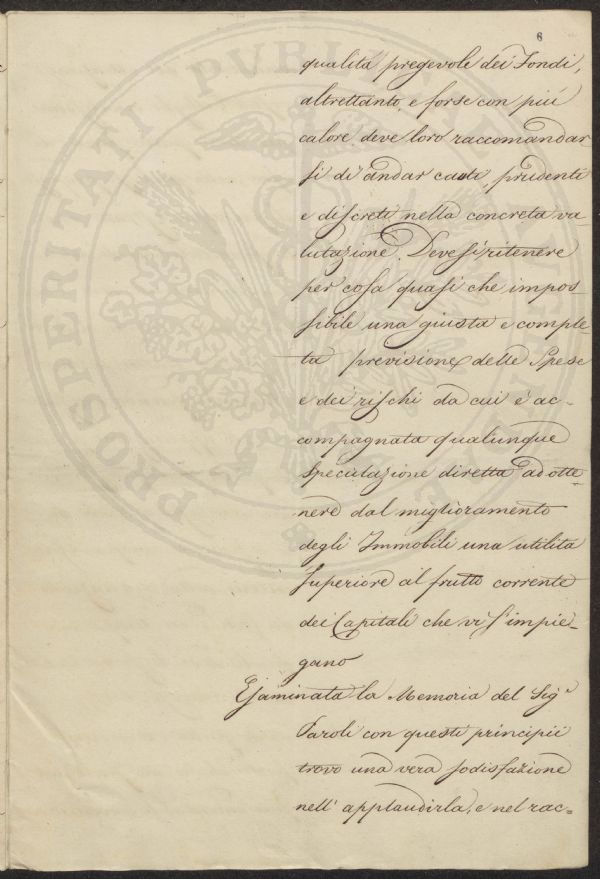 6
qualità pregevole dei Fondi,
altrettanto, e forse con più
calore deve loro raccomandar
si di andar cauti, prudenti
e discreti nella concreta va-
lutazione. Devesi ritenere
per cosa quasi che impos-
sibile una giusta e comple-
ta previsione delle Spese
e dei rischi da cui è ac-
compagnata qualunque
speculazione diretta ad otte-
nere dal miglioramento
degli Immobili una utilità
superiore al frutto corrente
dei Capitali che vi s'impie-
gano
Esaminata la Memoria del Sig.r
Paroli con questi principii
trovo una vera sodisfazione
nell' applaudirla, e nel rac=
PROSPERITATI PVBLICAE